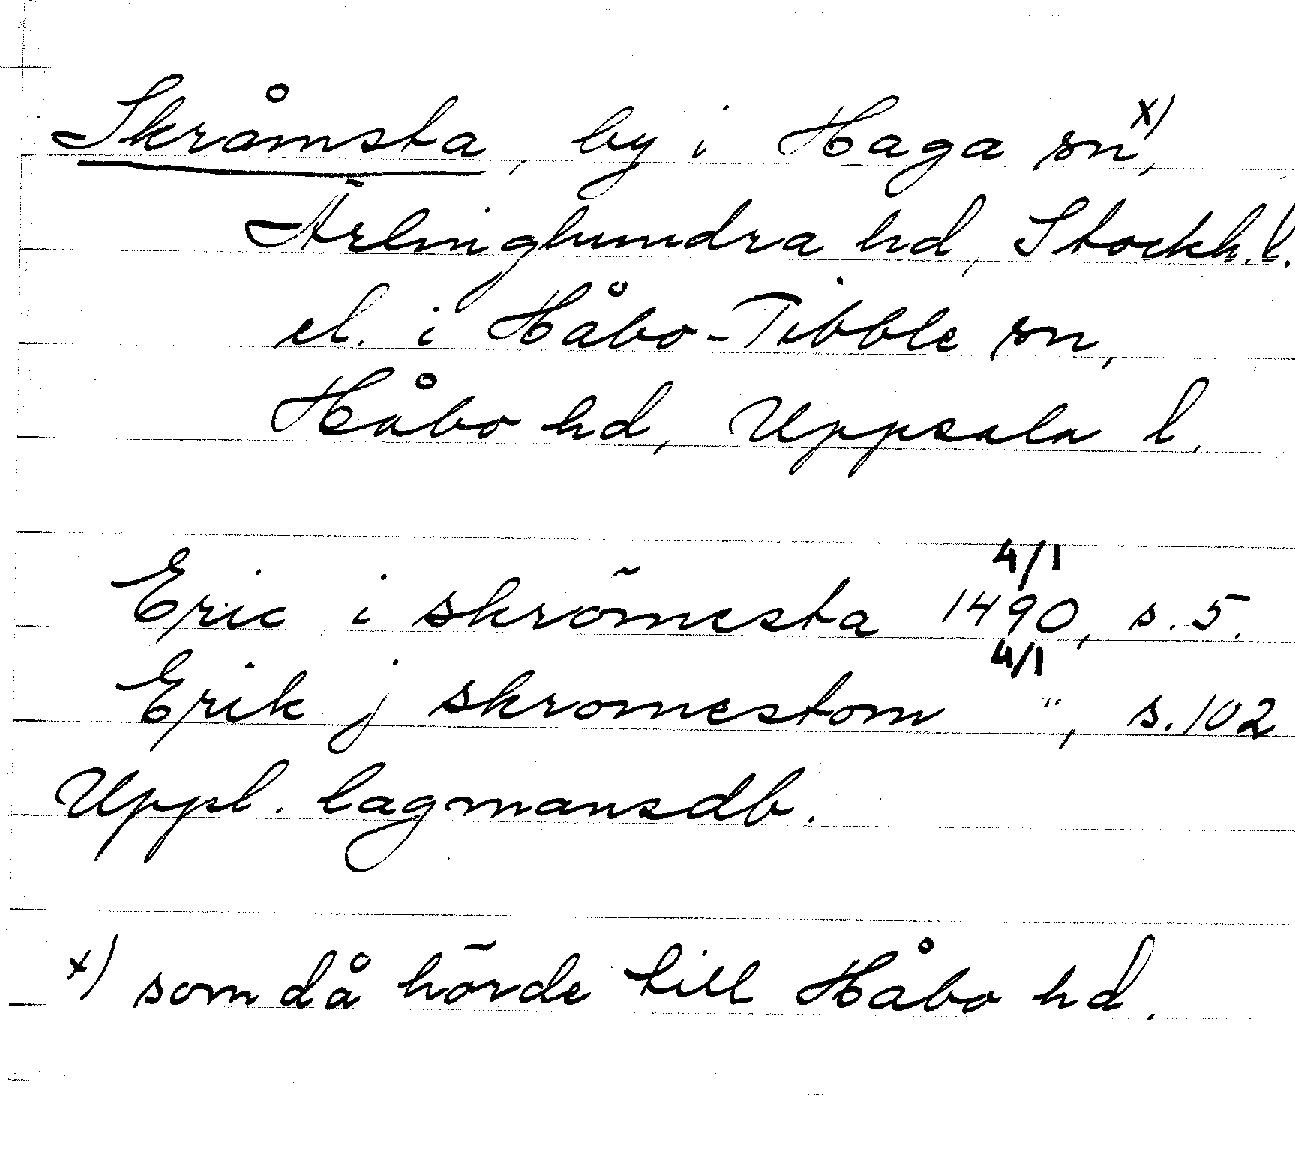 Skråmsta, by i Haga sn x),
Ärlinghundra hd, Stockh. l.
el. i Håbo-Tibble sn,
Håbo hd, Uppsala l.
4/1
Eric i skrömesta 1490, s. 5.
4/1
Erik j skromestom ", s. 102
Uppl. lagmansdb.
x) som då hörde till Håbo hd.